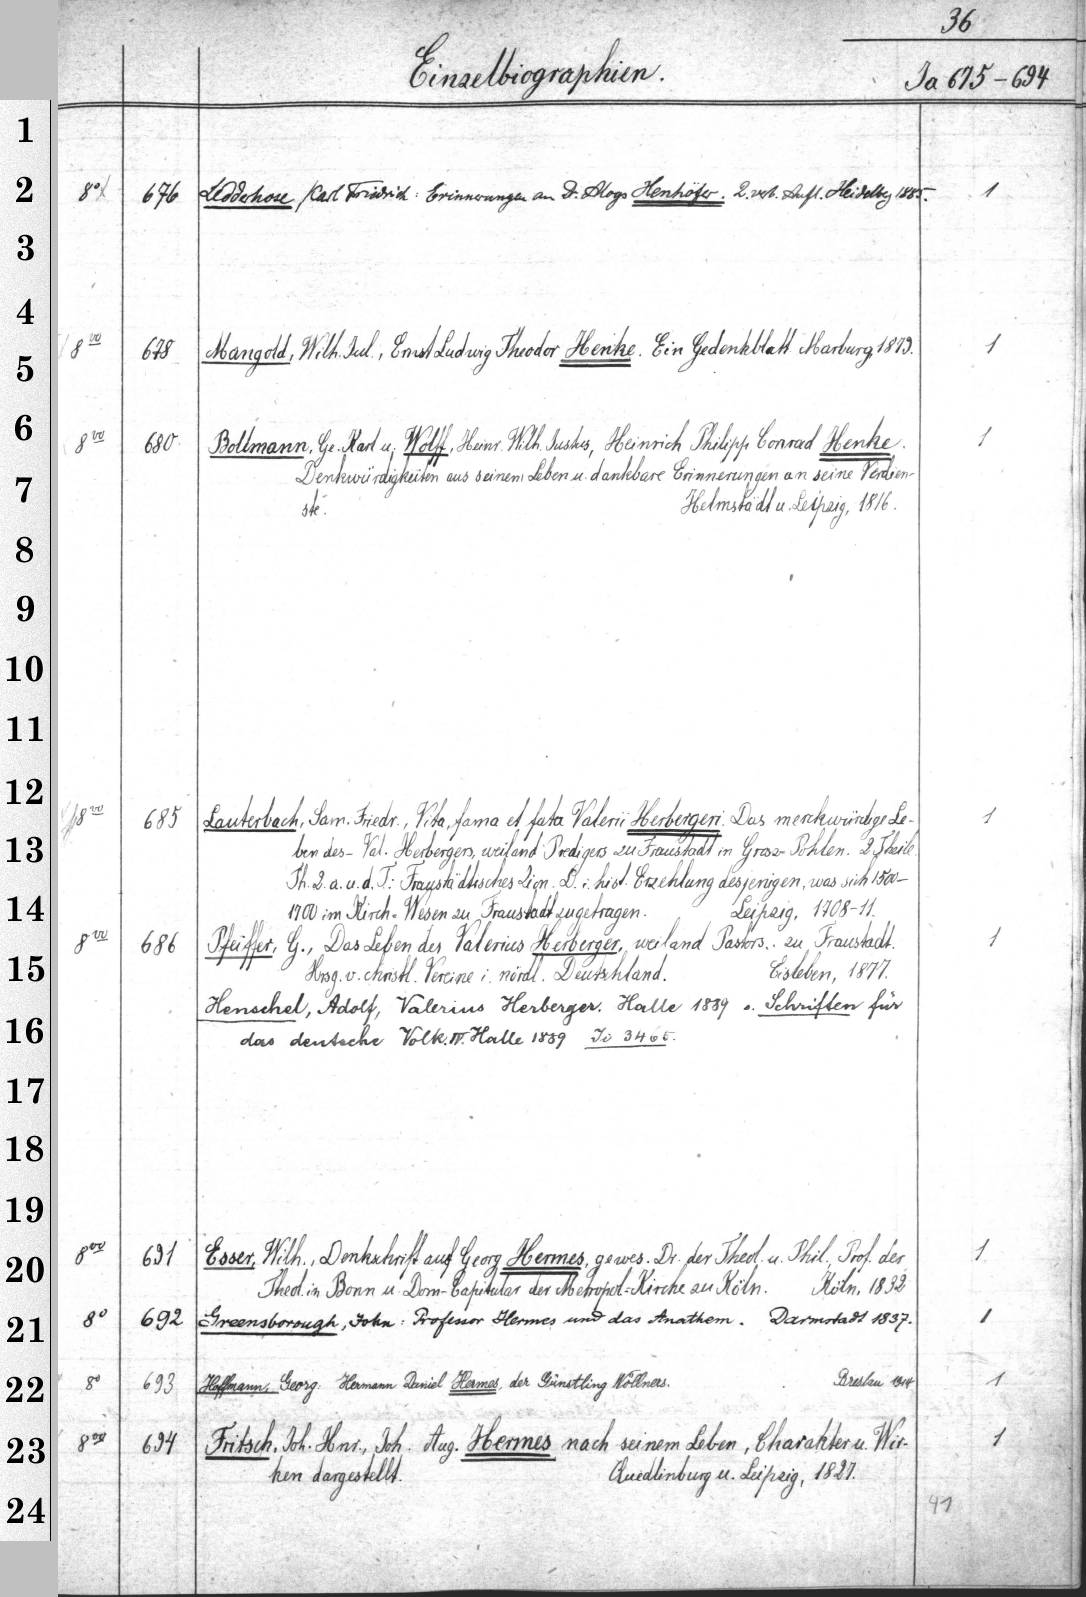 36
Einzelbiographien.
Ja 675-694
1
2 8° 676 Ledderhose, Karl Friedrich: Erinnerungen an Dr. Aloys Henhöfer. 2. verb. Aufl. Heidelbg 1885. 1
3
4
8vo 678 Mangold, Wilh. Jul., Ernst Ludwig Theodor Henke. Ein Gedenkblatt. Marburg, 1879. 1
5
6 8vo 680 Bollmann, Ge. Karl u. Wolff, Heinr. Wilh. Justus, Heinrich Philipp Conrad Henke. 1
Denkwürdigkeiten aus seinem Leben u. dankbare Erinnerungen an seine Verdien-
7 ste. Helmstädt u. Leipzig, 1816.
8
9
10
11
12
8vo 685 Lauterbach, Sam. Friedr., Vita, fama et fata Valerii Herbergeri. Das merckwürdige Le- 1
13 ben des - Val. Herbergers, weiland Predigers zu Fraustadt in Gross-Pohlen. 2 Theile.
Th. 2. a. u. d. T.: Fraustädtisches Zion. D. i. hist. Erzehlung desjenigen, was sich 1500-
14 1700 im Kirch-Wesen zu Fraustadt zugetragen. Leipzig, 1708-11.
8vo 686 Pfeiffer, G., Das Leben des Valerius Herberger, weiland Pastors.. zu Fraustadt. 1
15 Hrsg. v. christl. Vereine i. nördl. Deutschland. Eisleben, 1877.
Henschel, Adolf, Valerius Herberger. Halle 1889 s. Schriften für
16 das deutsche Volk. IV. Halle 1889 3465.
17
18
19
8vo 691 Esser, Wilh., Denkschrift auf Georg Hermes, gewes. Dr. der Theol. u. Phil., Prof. der 1
20 Theol. in Bonn u. Dom-Capitular der Metropol-Kirche zu Köln. Köln, 1832
21 8° 692 Greensborough, John: Professor Hermes und das Anathem. Darmstadt 1837. 1
22 8° 693 Hoffmann, Georg. Hermann Daniel Hermes, der Günstling Wöllners. Breslau 1914 1
23 8vo 694 Fritsch, Joh. Hnr., Joh. Aug. Hermes nach seinem Leben, Charakter u. Wir- 1
ken dargestellt. Quedlinburg u. Leipzig, 1827.
24
41